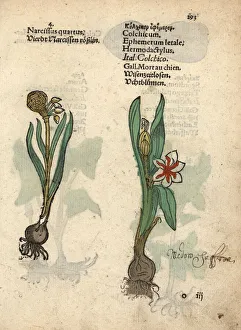 4.
Narcissus quartus.
Vierdt Narcissen rößlin.
203
Colchicum.
Ephemerum letale.
Hermodactylus.
Ital. Colchico.
Gall. Mort au chien.
Wisenzeitlosen.
Uchtblumen.
Medow Saffron.
O iij